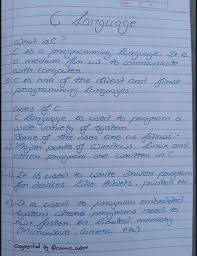 C Language
What is C?
C is a programming language. It is a
medium for us to communicate
with computer.
C is one of the oldest and finest
programming languages.
Uses of C
C language is used to program a
wide variety of system.
Some of the uses are as follows:-
1) Major parts of Windows, Linux and
other program are written in C
2) It is used to write driver program
for devices like tablets, printers etc
3) It is used to program embedded
system where programs need to
run faster in limited memory
(Microwave, camera etc)